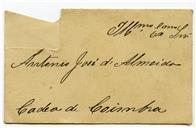 Illmo Exmo Snr
Antonio José d'Almeida
Cadea de Coimbra